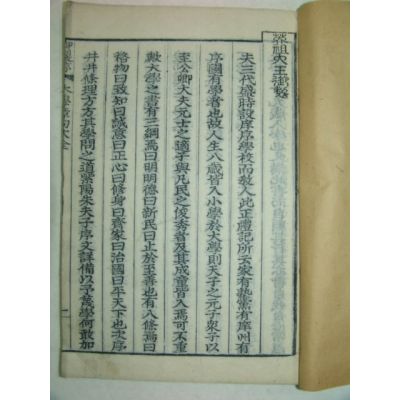 英祖大王御製
夫三代盛時設庠序學校而敎人此正禮記所云家有塾黨有庠州有
序國有學者也故人生八歲皆入小學於大學則天子之元子衆子以
至公卿大夫元士之適子與凡民之俊秀者及其成童皆入焉可不重
歟大學之書有三綱焉曰明明德曰新民曰止於至善也有八條焉曰
格物曰致知曰誠意曰正心曰修身曰齊家曰治國曰平天下也次序
井井條理方方其學問之道紫陽朱夫子序文詳備以予蔑學何敢加
大學章句大全 一